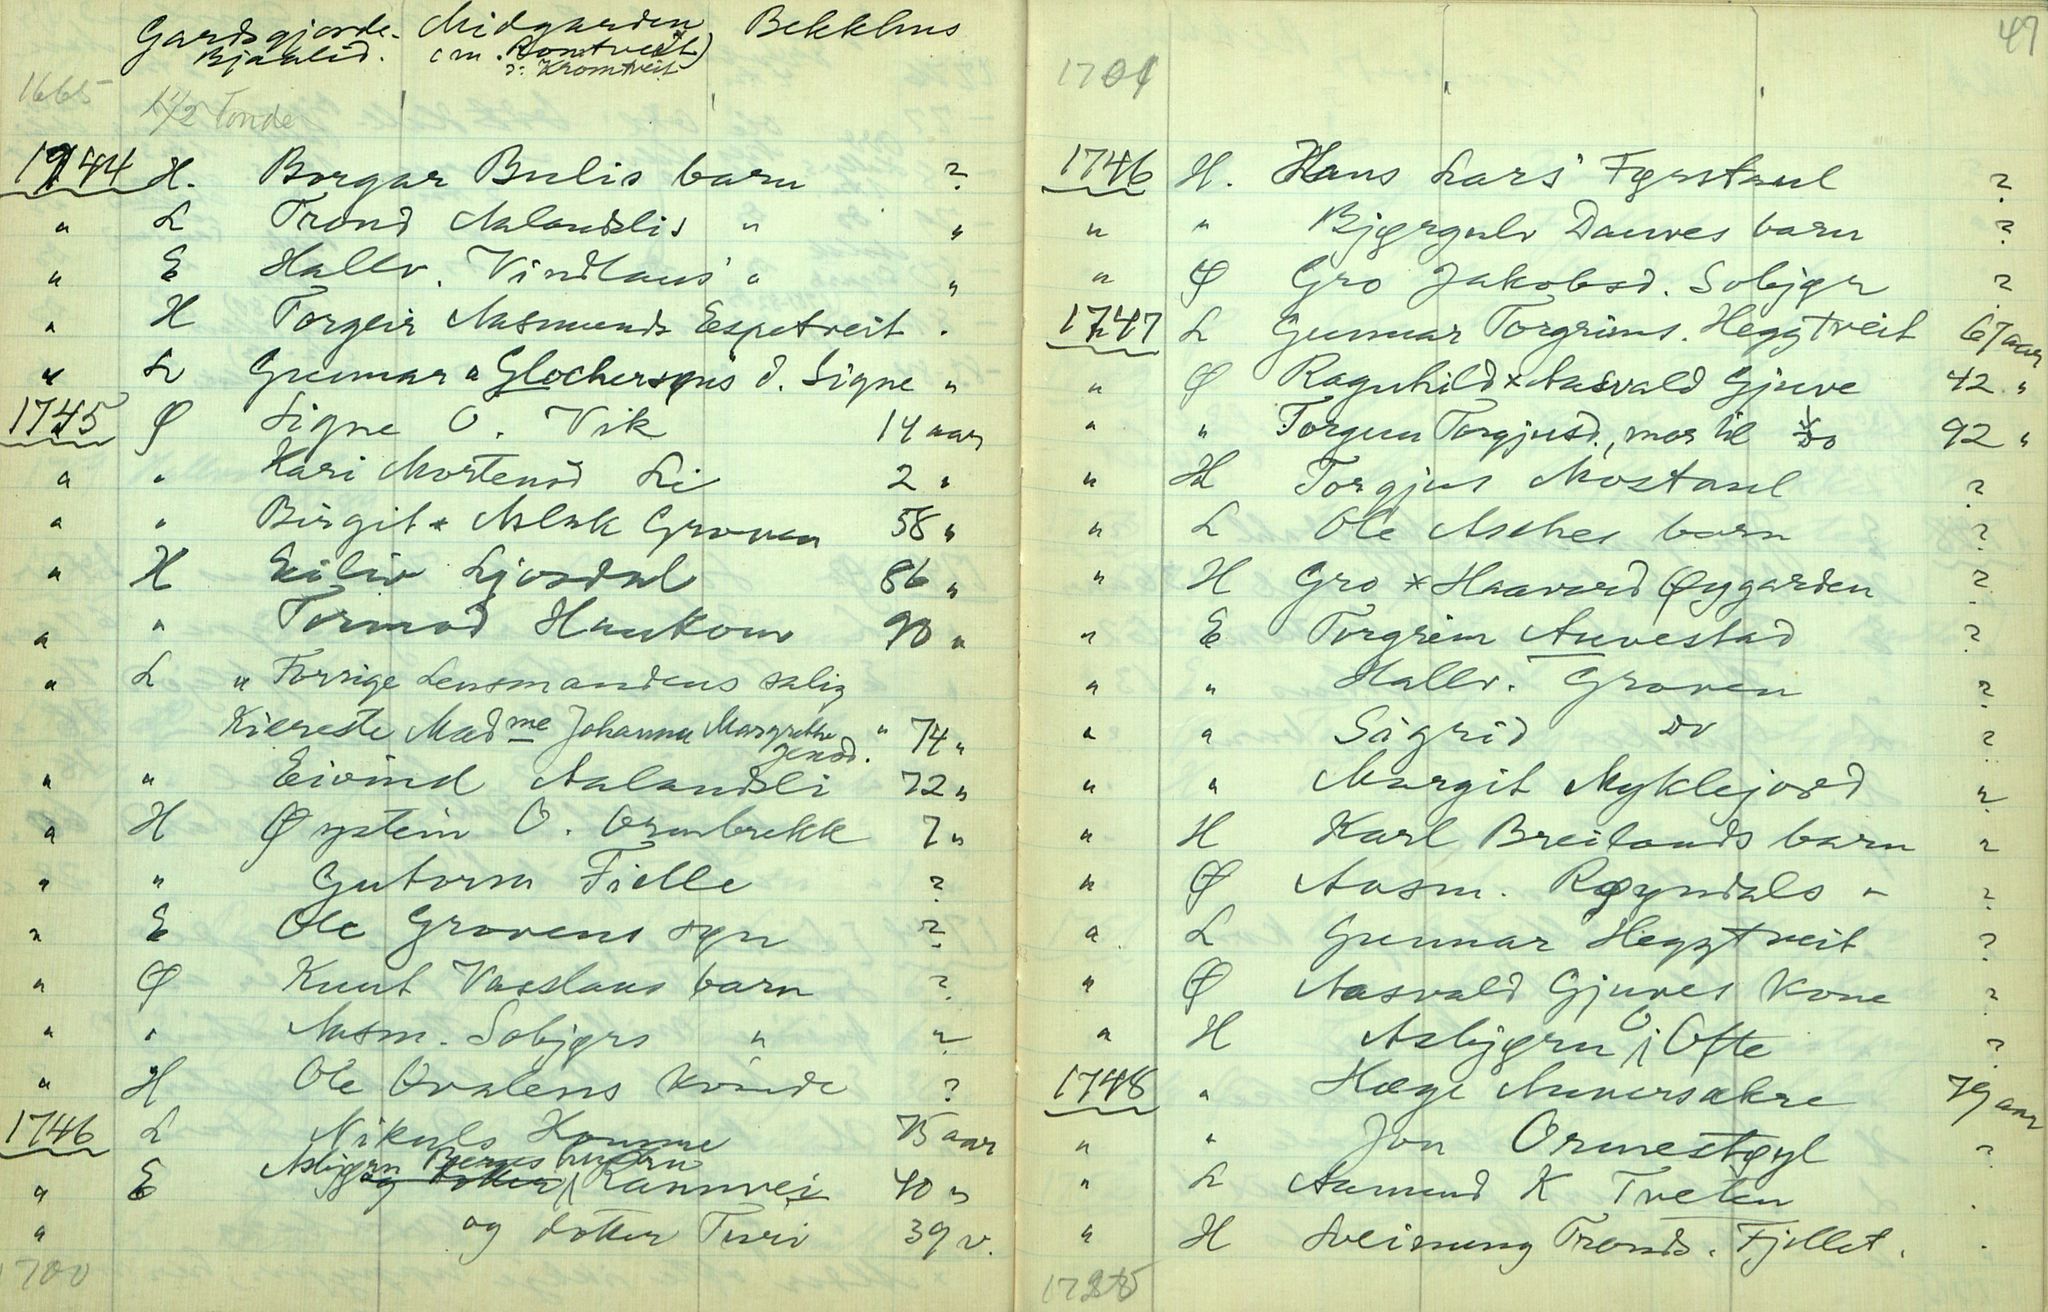 Gardsgjorde. Midgarden Bekkhus
Bjaalid. (m. Romtveit)
ɔ: Kromtveit
1665 1 1/2 Tonde
1744 H. Borgar Bulis barn ?
" L Trond Aalandslis " "
" E Hallv. Vindlaus " "
" H Torgeir Aasmunds Espetveit .
" L Gunnar a Glochersøns d. Signe "
1745 Ø Signe O. Vik 14 aar
" " Kari Mortensd Li 2 "
" " Birgit * Aslak Groven 58 "
" H Eiliv Ljosdal 86 "
" " Tormod Haukom 90 "
" L " Forrige Lensmandens salig
Kiereste Madme Johanna Margrethe " 74 "
Jensd.
" " Eivind Aalandsli 72 "
" H Øystein O. Ormbrekk 7 "
" " Gutorm Fielle ?
" E Ole Grovens søn ?
" Ø Knut Vaaslaus barn ?
" " Aasm. Sobjørs " "
" H Ole Ovalens kvinde ?
1746 L Nikuls Homme 75 aar
" E Asbjørn Berges hustru Rannvei 40 "
" og dotter Turi 39 v.
1700
49
1701
1746 H. Hans Lars' Fyrstaul ?
" " Bjørgulv Dauves barn ?
" Ø Gro Jakobsd. Sobjør ?
1747 L Gunnar Torgrims. Heggtveit 67 aar
" Ø Ragnhild * Aasvald Gjuve 42 "
" " Torgun Torgjusd., mor til do 92 "
" H Torgjus Mostaul ?
" L Ole Asches barn ?
" H Gro * Haavard Øygarden ?
" E Torgrim Auvestad ?
" " Hallv. Groven ?
" " Sigrid do ?
" " Margit Myklejord "
" H Karl Breilands barn "
" Ø Aasm. Røyndals " ?
" L Gunnar Heggtveit. ?
" Ø Aasvald Gjuves Kone ?
" H Asbjørn O Ofte ?
1748 " Hæge Auversakre 79 aar
" " Jon Ormestøyl ?
" L Aamund K Tveten .
" H Sveinung Tronds. Fjellet. .